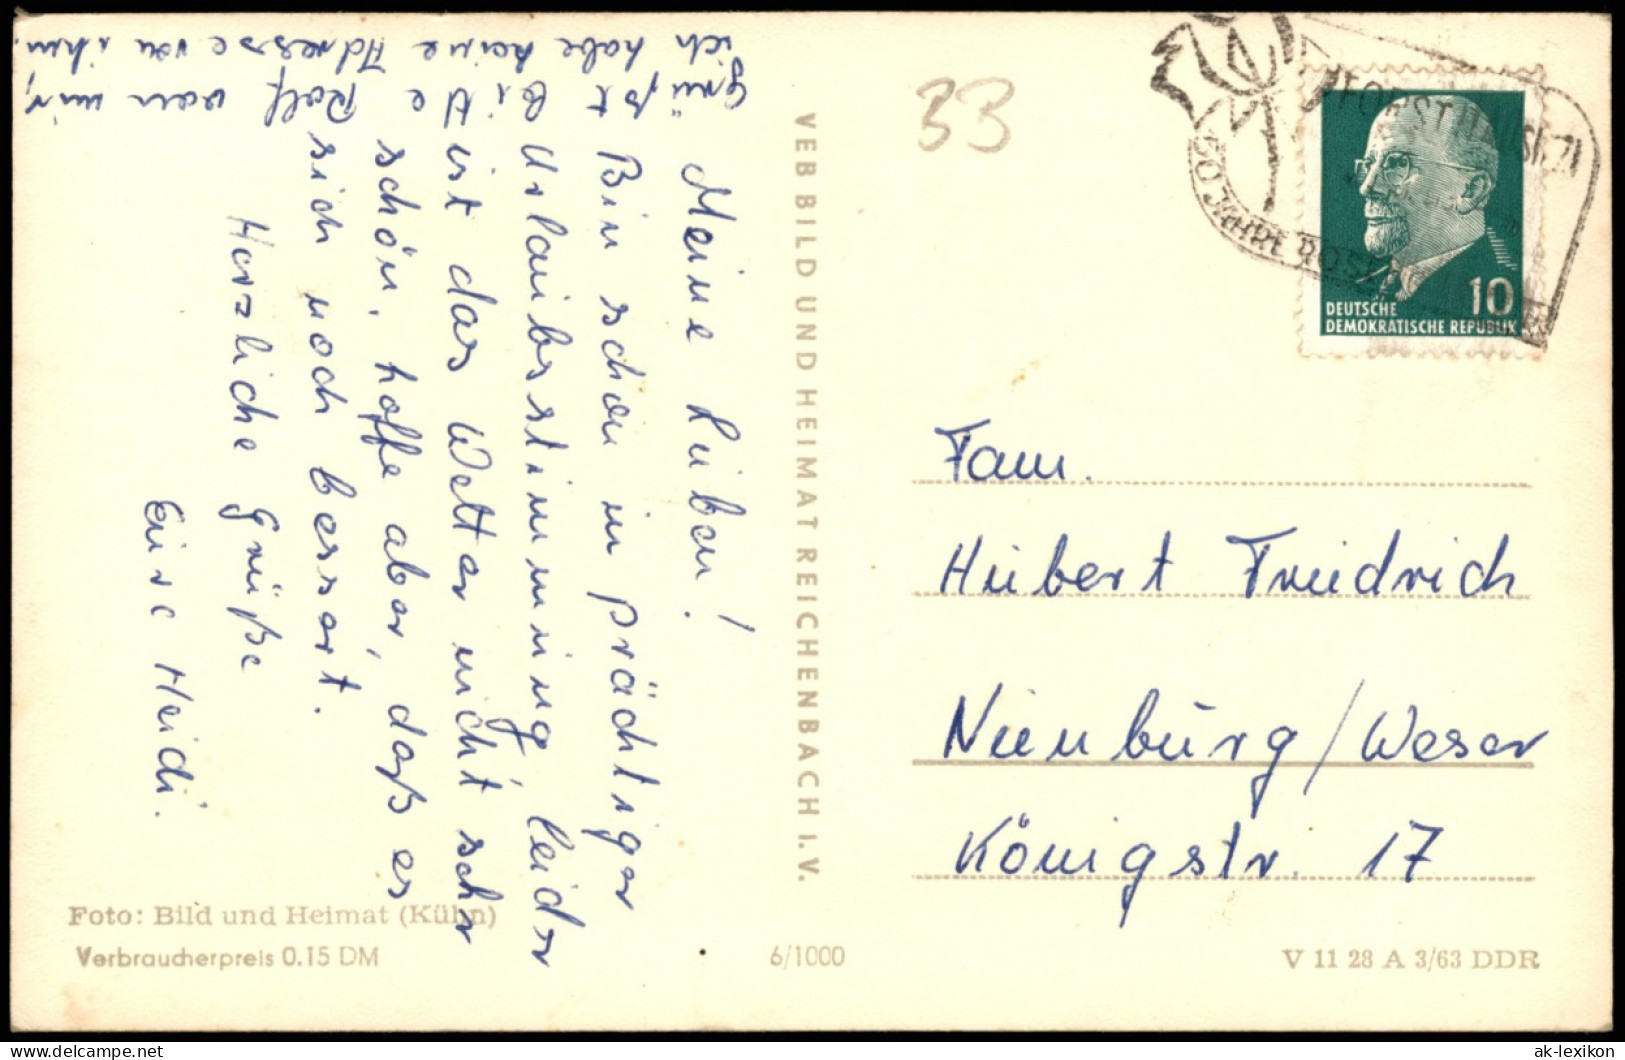 Meine Lieben!
Bin schon in prächtiger
Urlaubsstimmung, leider
ist das Wetter nicht sehr
schön, hoffe aber, daß es
sich noch bessert.
Herzliche Grüße
Eure Heidi.
Grüßt bitte Rolf von mir,
ich habe keine Adresse von ihm.
VEB BILD UND HEIMAT REICHENBACH I. V.
33
50 JAHRE
DEUTSCHE
DEMOKRATISCHE REPUBLIK
10
Fam.
Hubert Friedrich
Nienburg/Weser
Königstr. 17
Foto: Bild und Heimat (Kühn)
Verbraucherpreis 0.15 DM
6/1000
V 11 28 A 3/63 DDR
delcampe.net
ak-lexikon